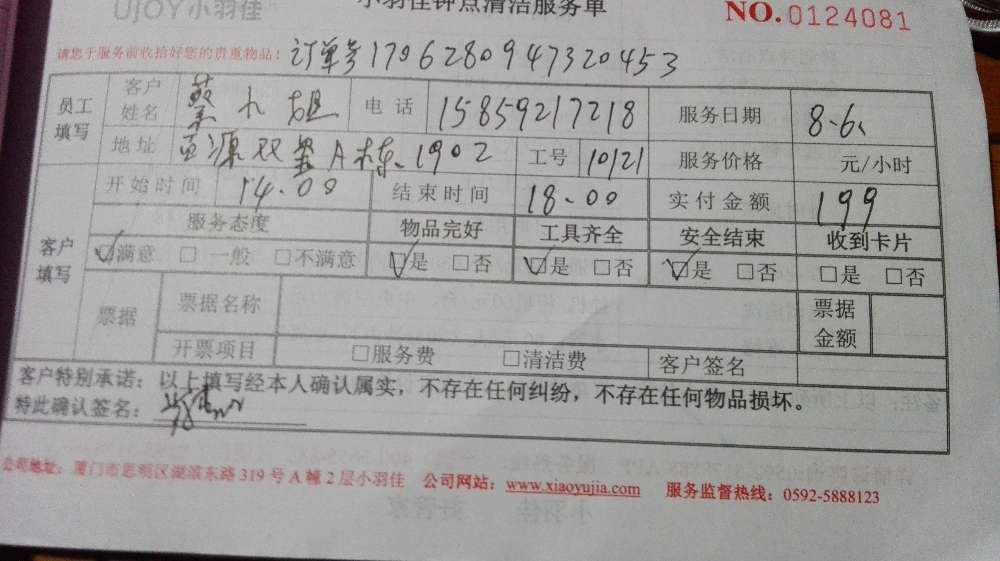 UJOY小羽佳
小羽佳钟点清洁服务单
NO.0124081
请您于服务前收拾好您的贵重物品！ 订单号1706280947320453
员工填写 客户姓名 蔡小姐 电话 15859217218 服务日期 8.6
地址 源双 A栋.1902 工号 10121 服务价格 元/小时
开始时间 14.00 结束时间 18.00 实付金额 199
客户填写 服务态度 物品完好 工具齐全 安全结束 收到卡片
☑满意 □一般 □不满意 ☑是 □否 ☑是 □否 ☑是 □否 □是 □否
票据 票据名称 票据金额
开票项目 □服务费 □清洁费 客户签名
客户特别承诺：以上填写经本人确认属实，不存在任何纠纷，不存在任何物品损坏。
特此确认签名：
公司地址：厦门市思明区湖滨东路319号A幢2层小羽佳 公司网站：www.xiaoyujia.com 服务监督热线：0592-5888123